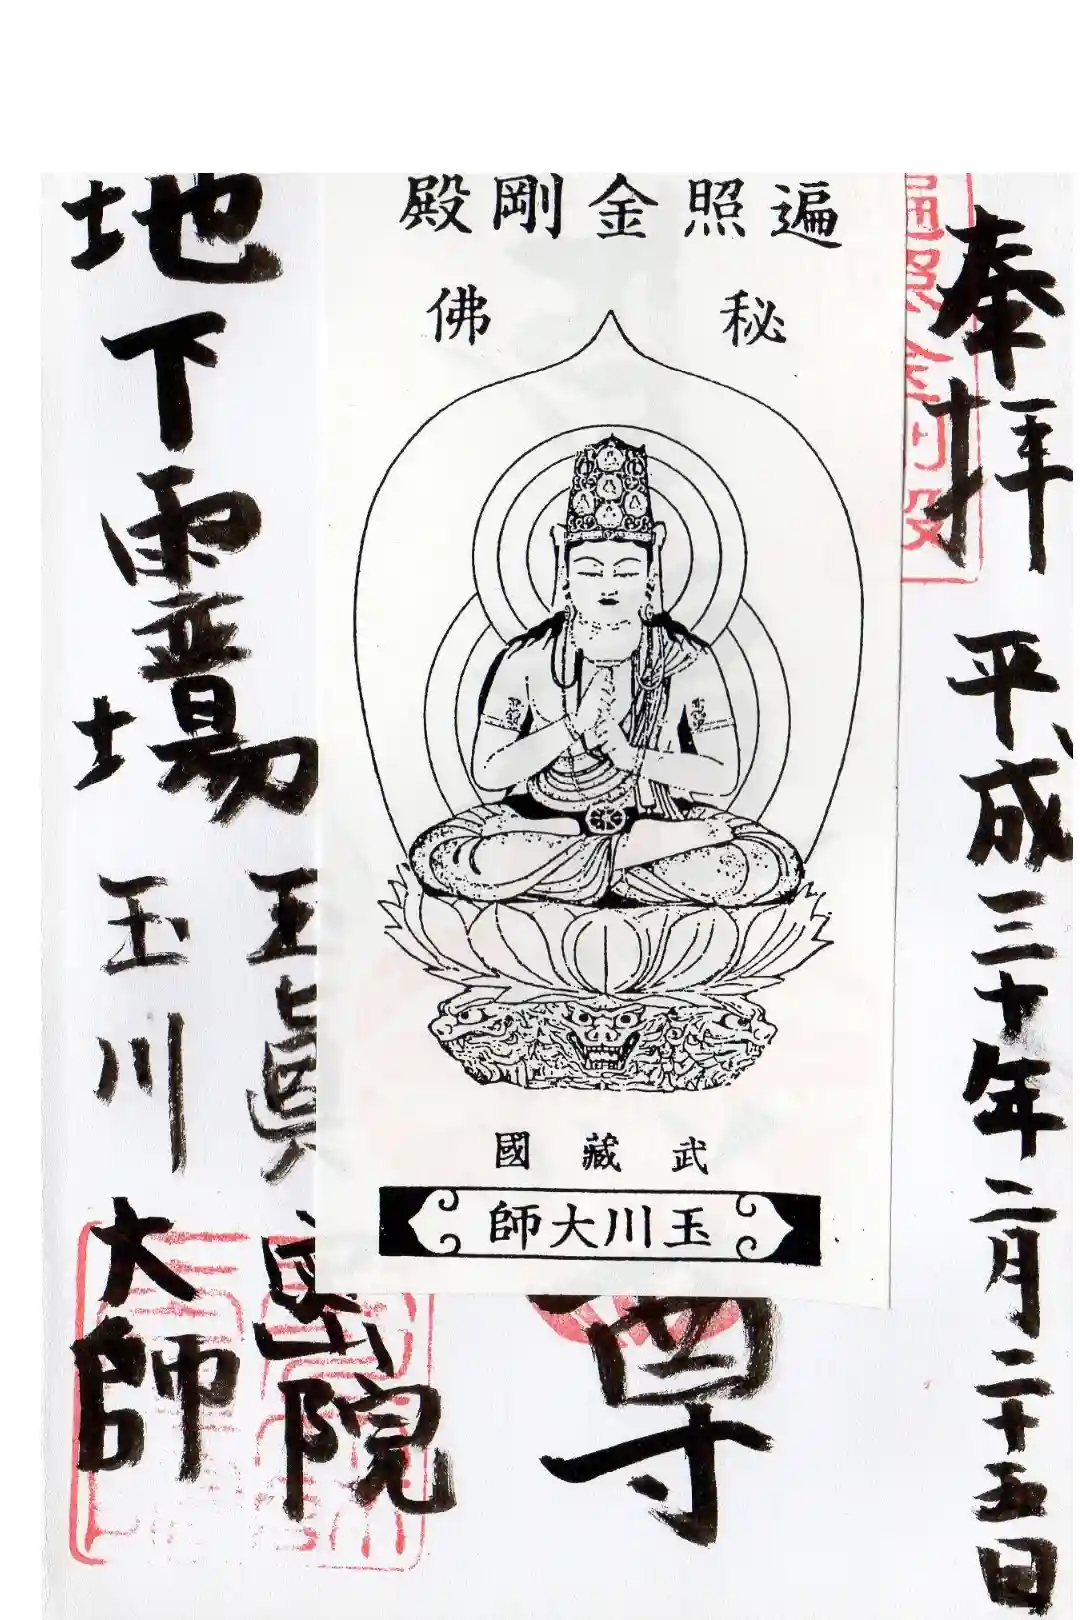 奉拝 平成三十年二月二十五日
遍照金剛殿
秘佛
武藏國
玉川大師
尊
玉眞密院
地下靈場 玉川大師